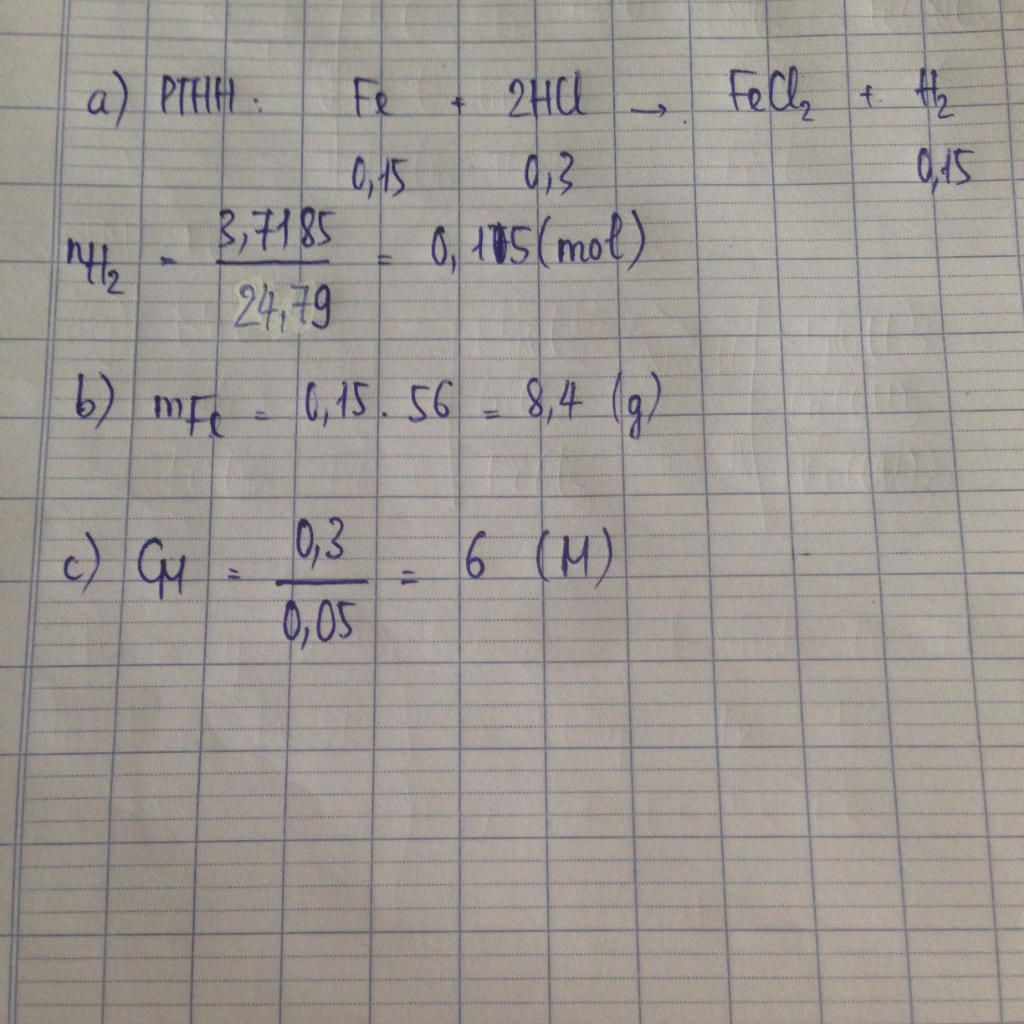 a) PTHH: Fe + 2HCl → FeCl₂ + H₂
0,15 0,3 0,15
nH₂ = 3,7185 / 24,79 = 0,15 (mol)
b) mFe = 0,15 . 56 = 8,4 (g)
c) CM = 0,3 / 0,05 = 6 (M)